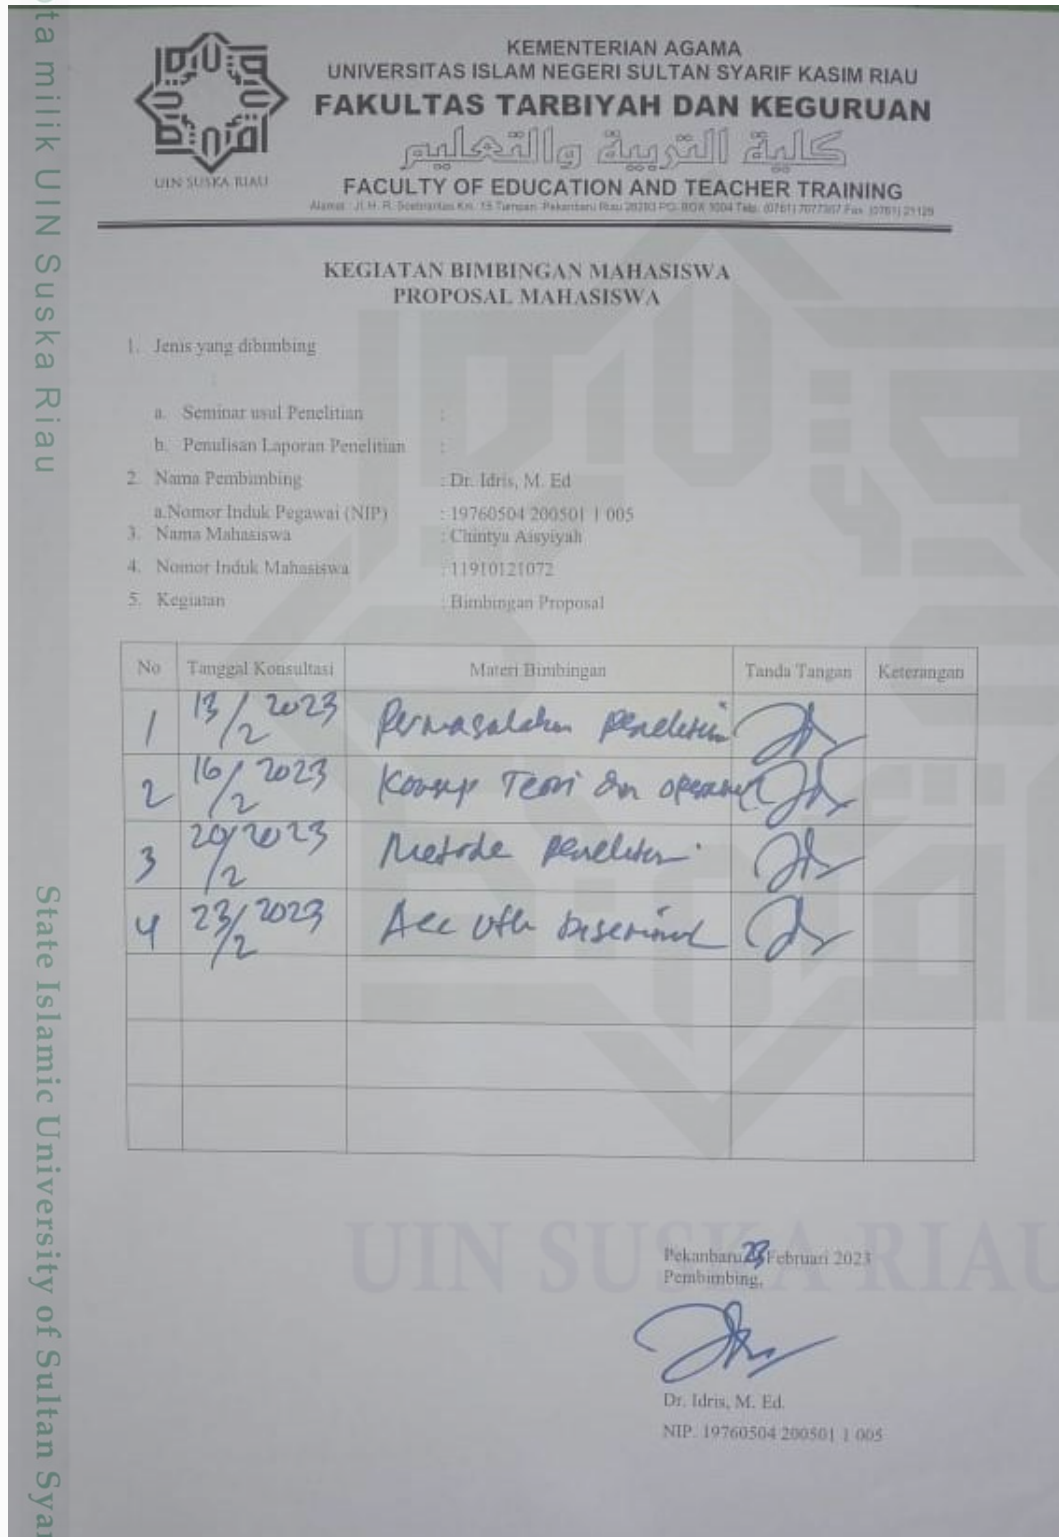 ota milik UIN Suska Riau
State Islamic University of Sultan Syar
UIN SUSKA RIAU
KEMENTERIAN AGAMA
UNIVERSITAS ISLAM NEGERI SULTAN SYARIF KASIM RIAU
FAKULTAS TARBIYAH DAN KEGURUAN
كلية التربية والتعليم
FACULTY OF EDUCATION AND TEACHER TRAINING
Alamat : Jl. H. R. Soebrantas Km. 15 Tampan Pekanbaru Riau 28293 PO. BOX 1004 Telp. (0761) 7077307 Fax. (0761) 21129
KEGIATAN BIMBINGAN MAHASISWA
PROPOSAL MAHASISWA
1. Jenis yang dibimbing
a. Seminar usul Penelitian :
b. Penulisan Laporan Penelitian :
2. Nama Pembimbing : Dr. Idris, M. Ed
a.Nomor Induk Pegawai (NIP) : 19760504 200501 1 005
3. Nama Mahasiswa : Chintya Aisyiyah
4. Nomor Induk Mahasiswa : 11910121072
5. Kegiatan : Bimbingan Proposal
No Tanggal Konsultasi Materi Bimbingan Tanda Tangan Keterangan
1 13/2 2023 Permasalahan penelitian
2 16/2 2023 Konsep Teori dan operasional
3 20/2 2023 Metode penelitian.
4 23/2 2023 Acc utk diseminarkan
UIN SUSKA RIAU
Pekanbaru, 23 Februari 2023
Pembimbing,
Dr. Idris, M. Ed.
NIP. 19760504 200501 1 005